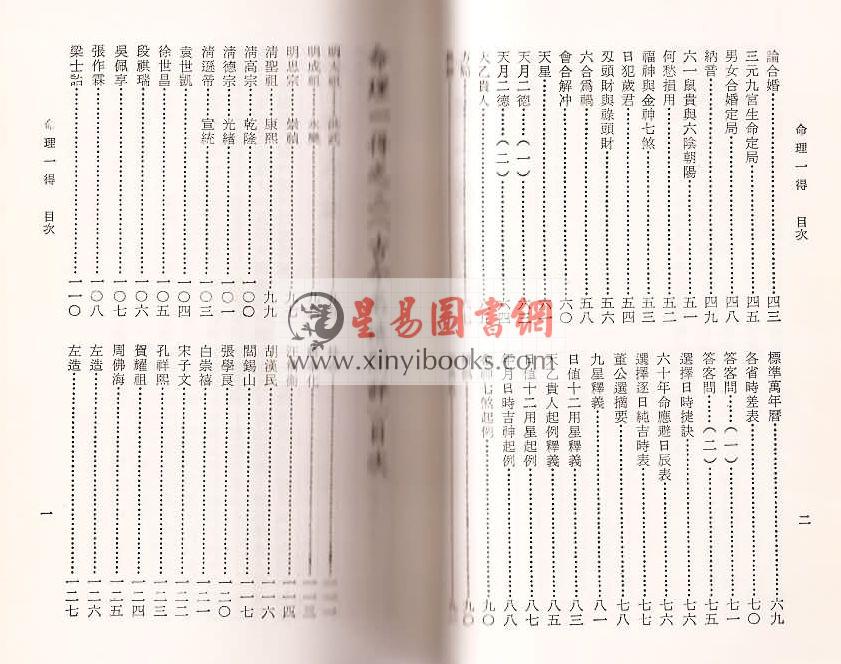 命理一得 目次
論合婚……四三
三元九宮生命定局……四五
男女合婚定局……四八
納音……四九
六一鼠貴與六陰朝陽……五一
何愁損用……五二
福神與金神七煞……五三
日犯歲君……五四
刄頭財與祿頭財……五五
六合爲禍……五八
會合解冲……六〇
天星……
天月二德(一)……
天月二德(二)……四
天乙貴人……
標準萬年曆……六九
各省時差表……七〇
答客問……(一)……七一
答客問……(二)……七五
選擇日時捷訣……七六
六十年命應避日辰表……七六
選擇逐日純吉時表……七七
董公選摘要……七八
九星釋義……八一
日值十二用星釋義……八三
天乙貴人起例釋義……八六
值十二用星起例……八七
月日時吉神起例……八八
七煞起例……九〇
二
明成祖 永樂
明思宗 崇禎……九七
清聖祖 康熙……九九
清高宗 乾隆……一〇〇
清德宗 光緒……一〇一
清遜帝 宣統……一〇三
袁世凱……一〇四
徐世昌……一〇五
段祺瑞……一〇六
吳佩孚……一〇七
張作霖……一〇八
梁士詒……一一〇
一一四
胡漢民……一一六
閻錫山……一一七
張學良……一二〇
白崇禧……一二一
宋子文……一二二
孔祥熙……一二三
賀耀祖……一二四
周佛海……一二五
左造……一二六
左造……一二七
命理一得 目次
一
星易圖書網
www.xinyibooks.com